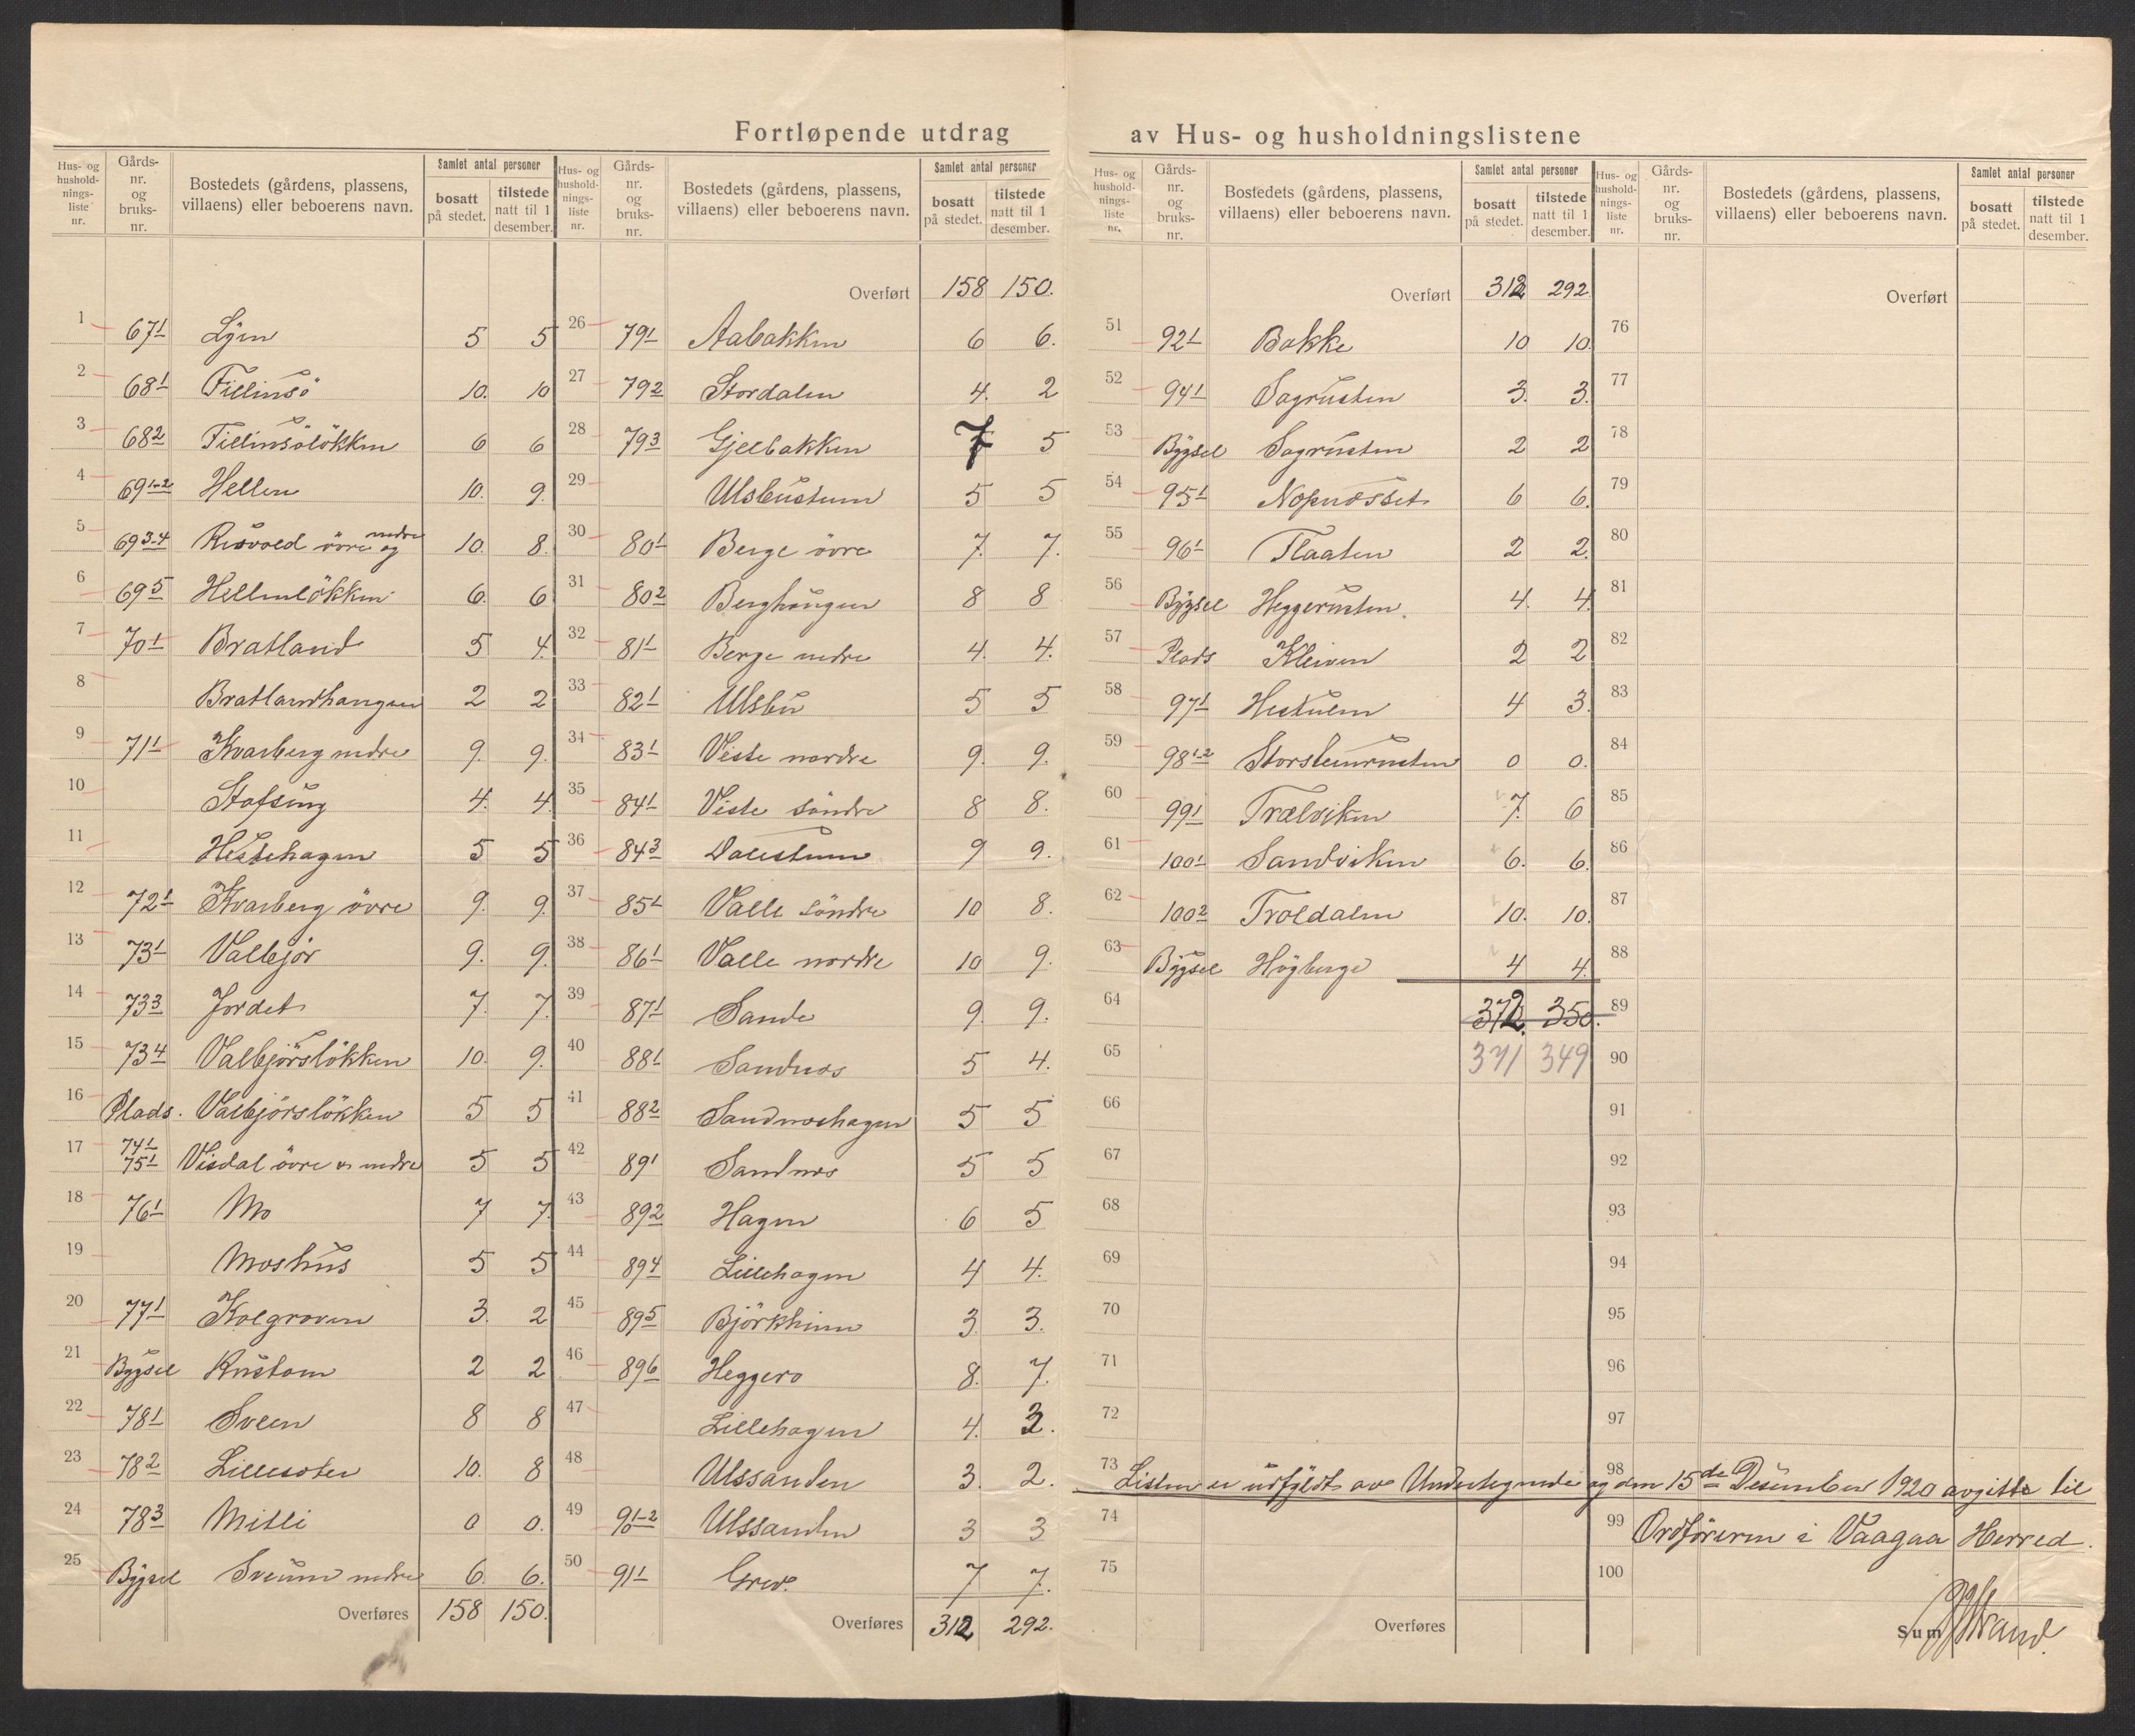 Fortløpende utdrag av Hus- og husholdningslistene
Hus- og husholdningsliste nr. | Gårds-nr. og bruks-nr. | Bostedets (gårdens, plassens, villaens) eller beboerens navn. | Samlet antal personer bosatt på stedet. | tilstede natt til 1 desember.
1 67 1 Lyen 5 5
2 68 1 Tillinsö 10. 10
3 68 2 Tillinsölökken 6 6
4 69 1-2 Hellen 10. 9.
5 69 3-4 Risvold övre og nedre 10. 8.
6 69 5 Hellenlökken 6. 6
7 70 1 Bratland 5 4.
8 Bratlandhaugen 2 2
9 71 1 Kvarberg nedre 9. 9.
10 Stafsing 4. 4
11 Hestehagen 5 5
12 72 1 Kvarberg övre 9. 9.
13 73 1 Valbjör 9. 9.
14 73 3 Jordet 7. 7.
15 73 4 Valbjörslökken 10. 9.
16 Plads. Valbjörslökken 5 5
17 74 1 75 1 Visdal övre og nedre 5 5
18 76 1 Mo 7 7.
19 Moshus 5 5
20 77 1 Kolgroven 3. 2
21 Bygsel Rustom 2 2
22 78 1 Sveen 8 8
23 78 2 Lillesæter 10. 8
24 78 3 Mitli 0 0.
25 Bygsel Sveum nedre 6. 6.
Overføres 158 150.
Hus- og husholdningsliste nr. | Gårds-nr. og bruks-nr. | Bostedets (gårdens, plassens, villaens) eller beboerens navn. | Samlet antal personer bosatt på stedet. | tilstede natt til 1 desember.
Overført 158 150.
26 79 1 Aabakken 6 6.
27 79 2 Stordalen 4. 2
28 79 3 Gjelbakken 7 5
29 Ulsbustuen 5 5
30 80 1 Berge övre 7. 7.
31 80 2 Berghaugen 8 8
32 81 1 Berge nedre 4. 4.
33 82 1 Ulsbu 5 5
34 83 1 Viste nordre 9. 9.
35 84 1 Viste söndre 8 8.
36 84 3 Dalestuen 9 9.
37 85 1 Valle söndre 10 8.
38 86 1 Valle nordre 10 9.
39 87 1 Sande 9. 9.
40 88 1 Sandnes 5 4.
41 88 2 Sandneshagen 5 5
42 89 1 Sandnes 5 5
43 89 2 Hagen 6 5
44 89 4 Lillehagen 4 4.
45 89 5 Björkheim 3. 3.
46 89 6 Heggero 8. 7.
47 Lillehagen 4. 3.
48 Ulssanden 3. 2.
49 90 1-2 Ulssanden 3 3
50 91 1 Grev. 7 7.
Overføres 312 292.
Hus- og husholdningsliste nr. | Gårds-nr. og bruks-nr. | Bostedets (gårdens, plassens, villaens) eller beboerens navn. | Samlet antal personer bosatt på stedet. | tilstede natt til 1 desember.
Overført 312 292
51 92 1 Bakke 10 10.
52 94 1 Sagrusten 3. 3.
53 Bygsel Sagrusten 2 2
54 95 1 Nopnæsset 6 6.
55 96 1 Flaaten 2 2.
56 Bygsel Heggerusten. 4. 4.
57 Plads Kleiven 2 2
58 97 1 Hestulen 4 3.
59 98 1-2 Storsteinrusten 0 0.
60 99 1 Trælviken 7. 6
61 100 1 Sandviken 6. 6.
62 100 2 Troldalen 10. 10.
63 Bygsel Högberge 4 4.
64 372. 350.
65 371 349
66
67
68
69
70
71
72
73
74
75
Overføres
Hus- og husholdningsliste nr. | Gårds-nr. og bruks-nr. | Bostedets (gårdens, plassens, villaens) eller beboerens navn. | Samlet antal personer bosatt på stedet. | tilstede natt til 1 desember.
Overført
76
77
78
79
80
81
82
83
84
85
86
87
88
89
90
91
92
93
94
95
96
97
98
Listen er udfyldt av Undertegnede og den 15de Desember 1920 avgitte til
99 Ordföreren i Vaagaa Herred.
100
Sum
Strand.